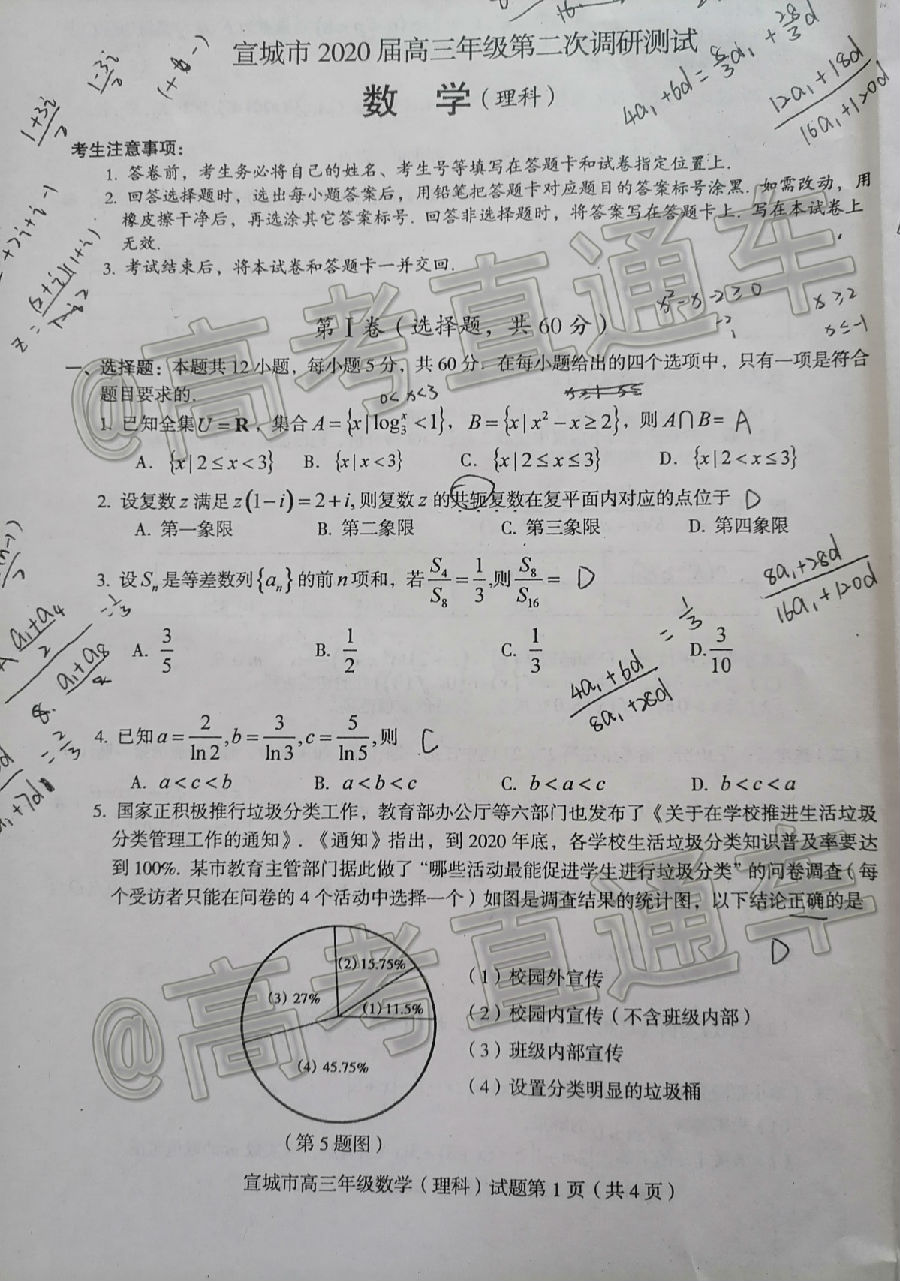 宣城市 2020 届高三年级第二次调研测试
数 学（理科）
考生注意事项：
1. 答卷前，考生务必将自己的姓名、考生号等填写在答题卡和试卷指定位置上.
2. 回答选择题时，选出每小题答案后，用铅笔把答题卡对应题目的答案标号涂黑. 如需改动，用
橡皮擦干净后，再选涂其它答案标号. 回答非选择题时，将答案写在答题卡上. 写在本试卷上
无效.
3. 考试结束后，将本试卷和答题卡一并交回.
x²-x-2≥0 x≥2
x≤-1
第 I 卷（选择题，共 60 分）
一、选择题：本题共 12 小题，每小题 5 分，共 60 分. 在每小题给出的四个选项中，只有一项是符合
题目要求的.
0<x<3
1. 已知全集U=R，集合 A={x|log₃ˣ<1}，B={x|x²-x≥2}，则 A∩B= A
A. {x|2≤x<3} B. {x|x<3} C. {x|2≤x≤3} D. {x|2<x≤3}
2. 设复数 z 满足 z(1-i)=2+i,则复数 z 的共轭复数在复平面内对应的点位于 D
A. 第一象限 B. 第二象限 C. 第三象限 D. 第四象限
3. 设 Sₙ 是等差数列{aₙ}的前 n 项和，若 S₄/S₈=1/3,则 S₈/S₁₆= D
A. 3/5 B. 1/2 C. 1/3 D. 3/10
(4a₁+6d)/(8a₁+28d) = 1/3
(8a₁+28d)/(16a₁+120d)
4a₁+6d=8/3d₁+28/3d
(12a₁+18d)/(16a₁+120d)
4. 已知 a=2/ln2,b=3/ln3,c=5/ln5,则 C
A. a<c<b B. a<b<c C. b<a<c D. b<c<a
5. 国家正积极推行垃圾分类工作，教育部办公厅等六部门也发布了《关于在学校推进生活垃圾
分类管理工作的通知》. 《通知》指出，到 2020 年底，各学校生活垃圾分类知识普及率要达
到 100%. 某市教育主管部门据此做了“哪些活动最能促进学生进行垃圾分类”的问卷调查（每
个受访者只能在问卷的 4 个活动中选择一个）如图是调查结果的统计图，以下结论正确的是
D
(2)15.75%
(3) 27%
(1)11.5%
(4) 45.75%
（1）校园外宣传
（2）校园内宣传（不含班级内部）
（3）班级内部宣传
（4）设置分类明显的垃圾桶
（第 5 题图）
宣城市高三年级数学（理科）试题第 1 页（共 4 页）
@高考直通车
@高考直通车